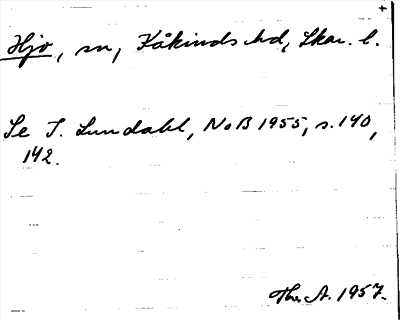 +
Hjo, sn, Kåkinds hd, Skar. l.
Se I. Lundahl, NoB 1955, s. 140,
142.
Thn. A. 1957.